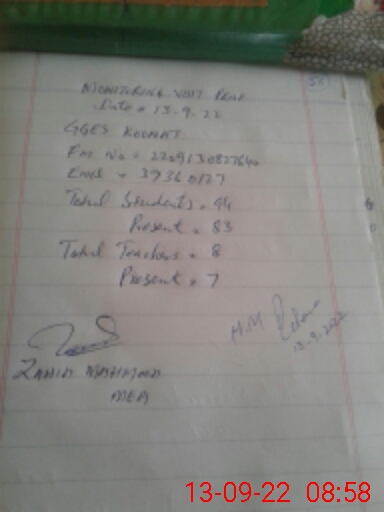 56
MONITORING VISIT PROF
Date = 13-9-22
GGES KOONAT
Fm No = 2209130827640
EMIS = 39360127
Total Students = 94
Present = 83
Total Teachers = 8
Present = 7
H.M
13.9.2022
ZAHID MAHMOOD
MEA
13-09-22 08:58